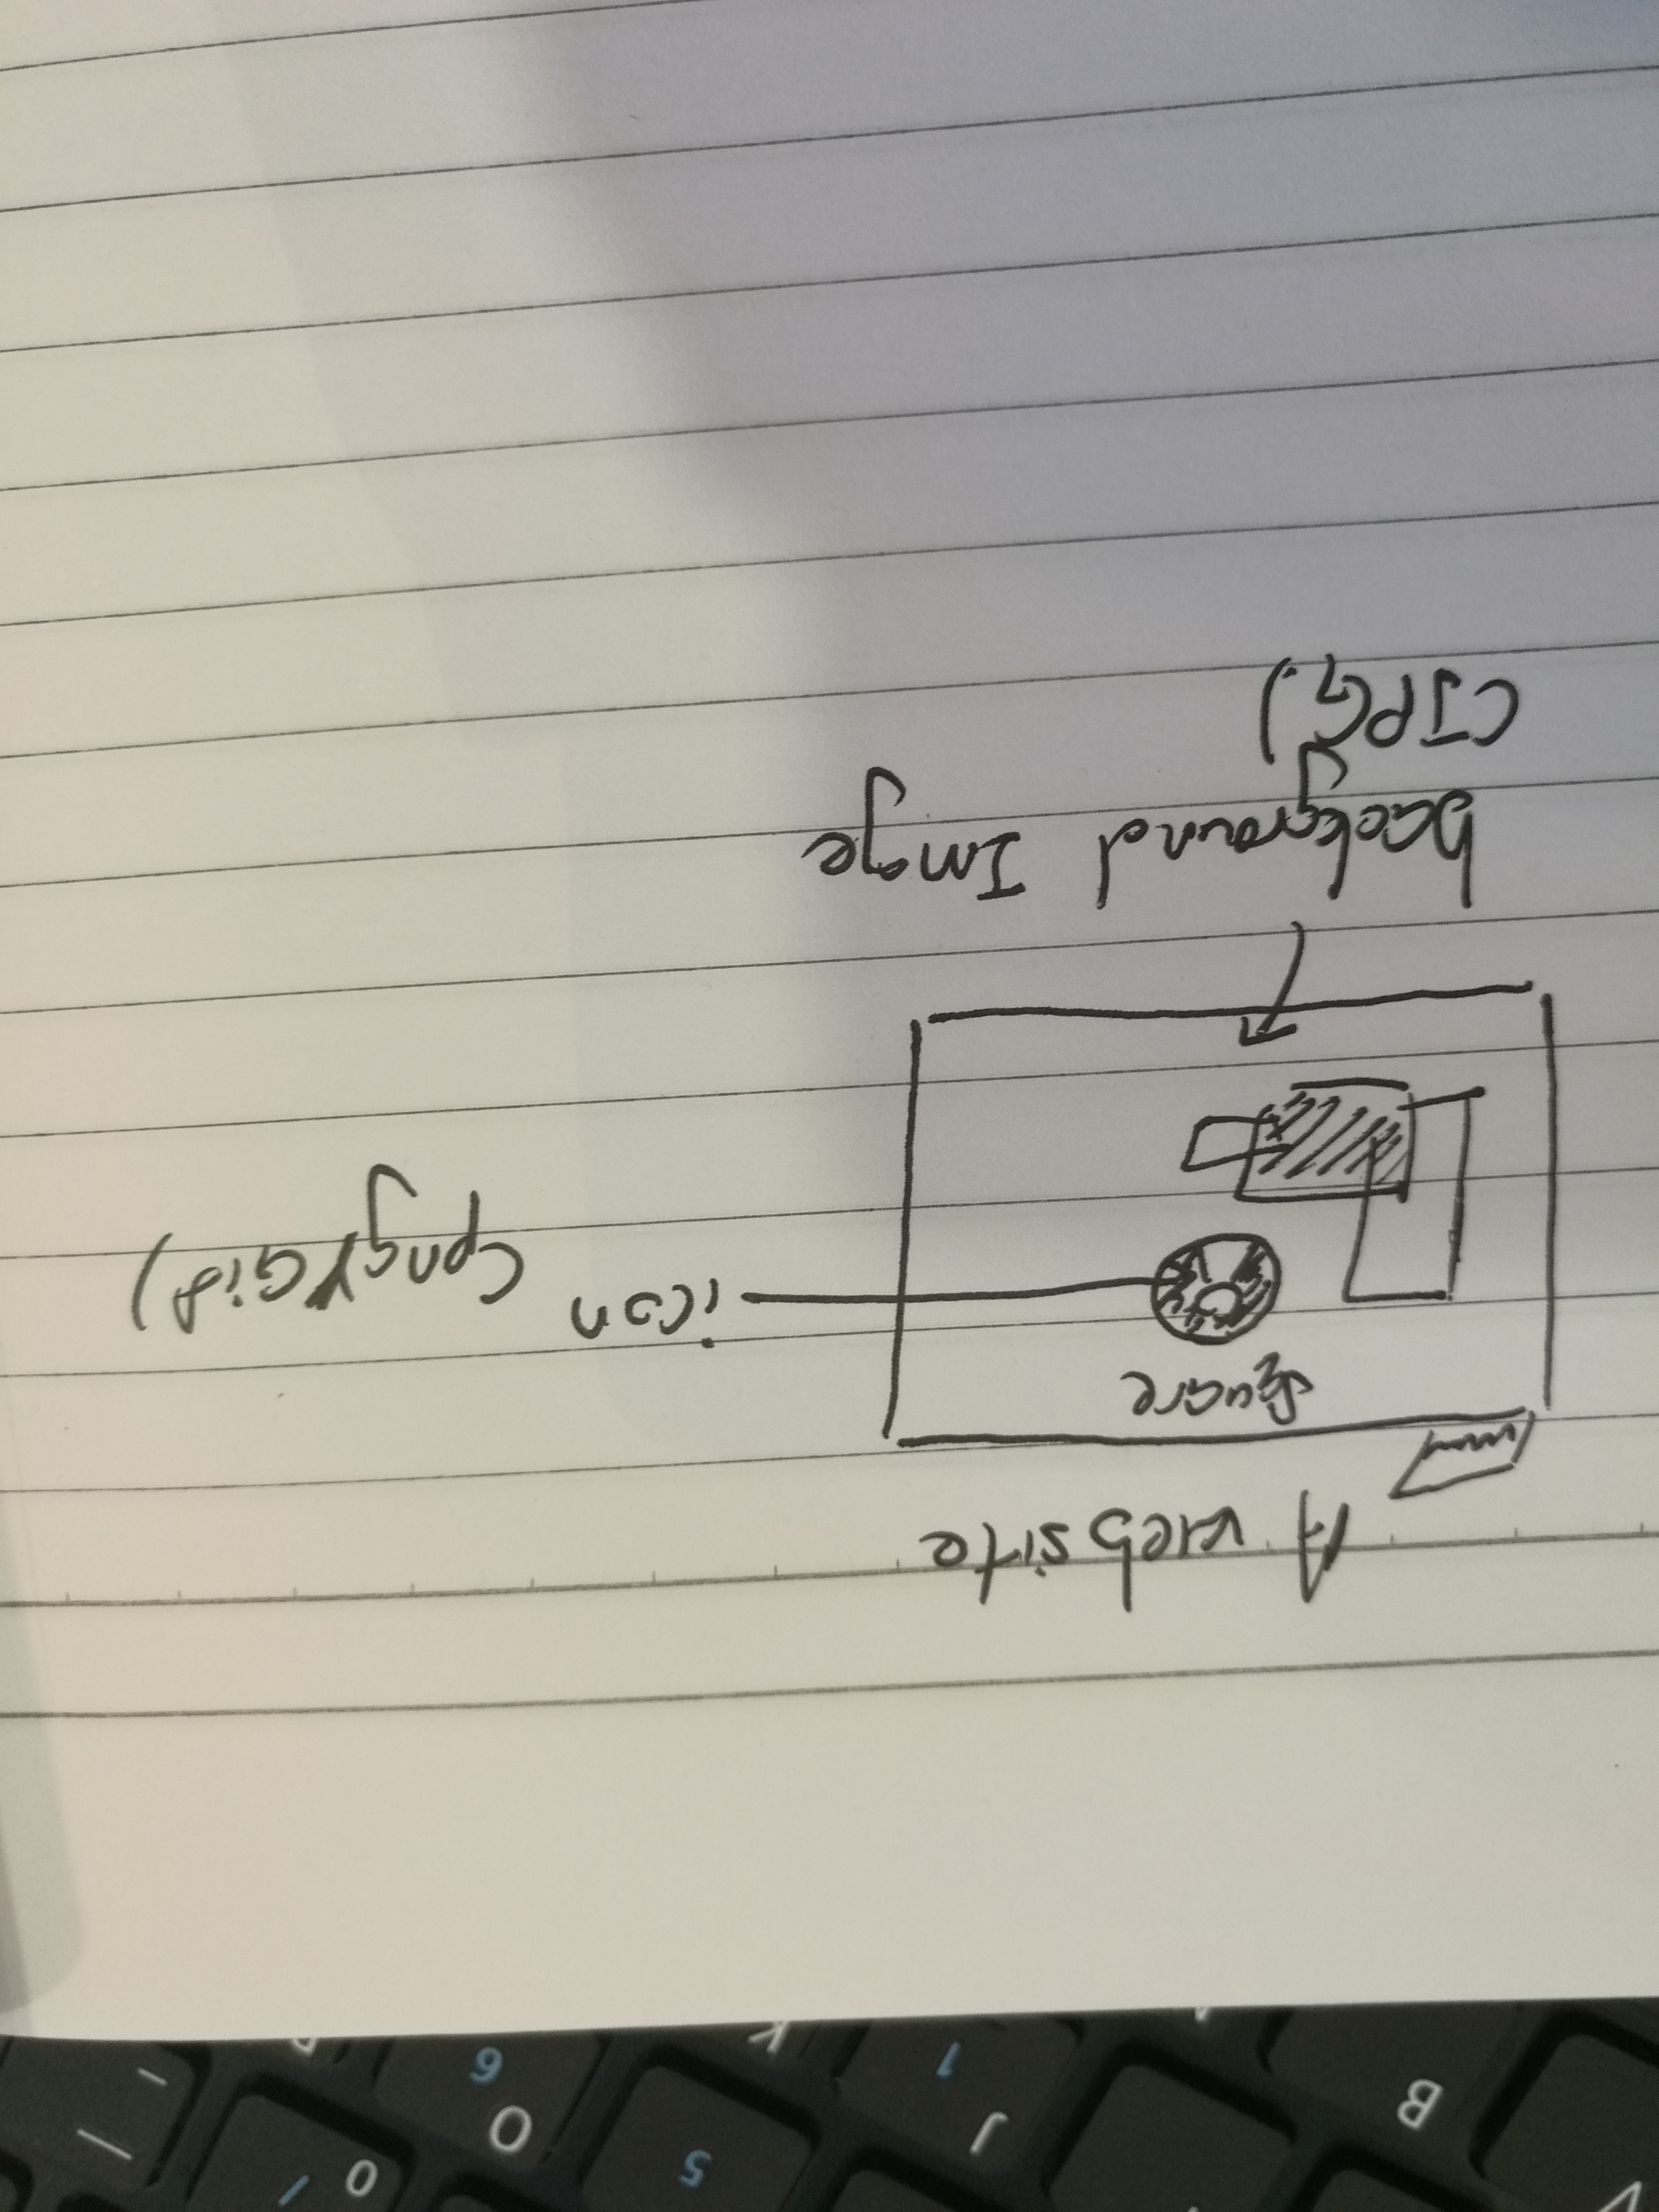 B
J
1
5
O
6
0
K
A website
Square
icon
(png/Gif)
background Imge
(JPG.)